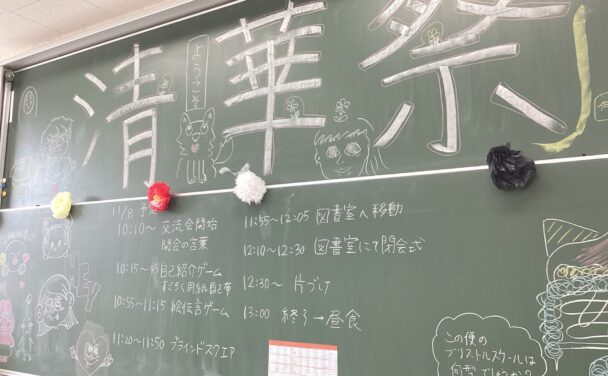 清華祭
ようこそ
11/8 予
10:10～ 交流会開始
開会の言葉
10:15～ 自己紹介ゲーム
すごろく用紙配布
10:55～11:15 絵伝言ゲーム
11:20～11:50 ブラインドスクエア
11:55～12:05 図書室へ移動
12:10～12:30 図書室にて閉会式
12:30～ 片づけ
13:00 終了→昼食
この便の
ブリストルスケールは
何型でしょうか?